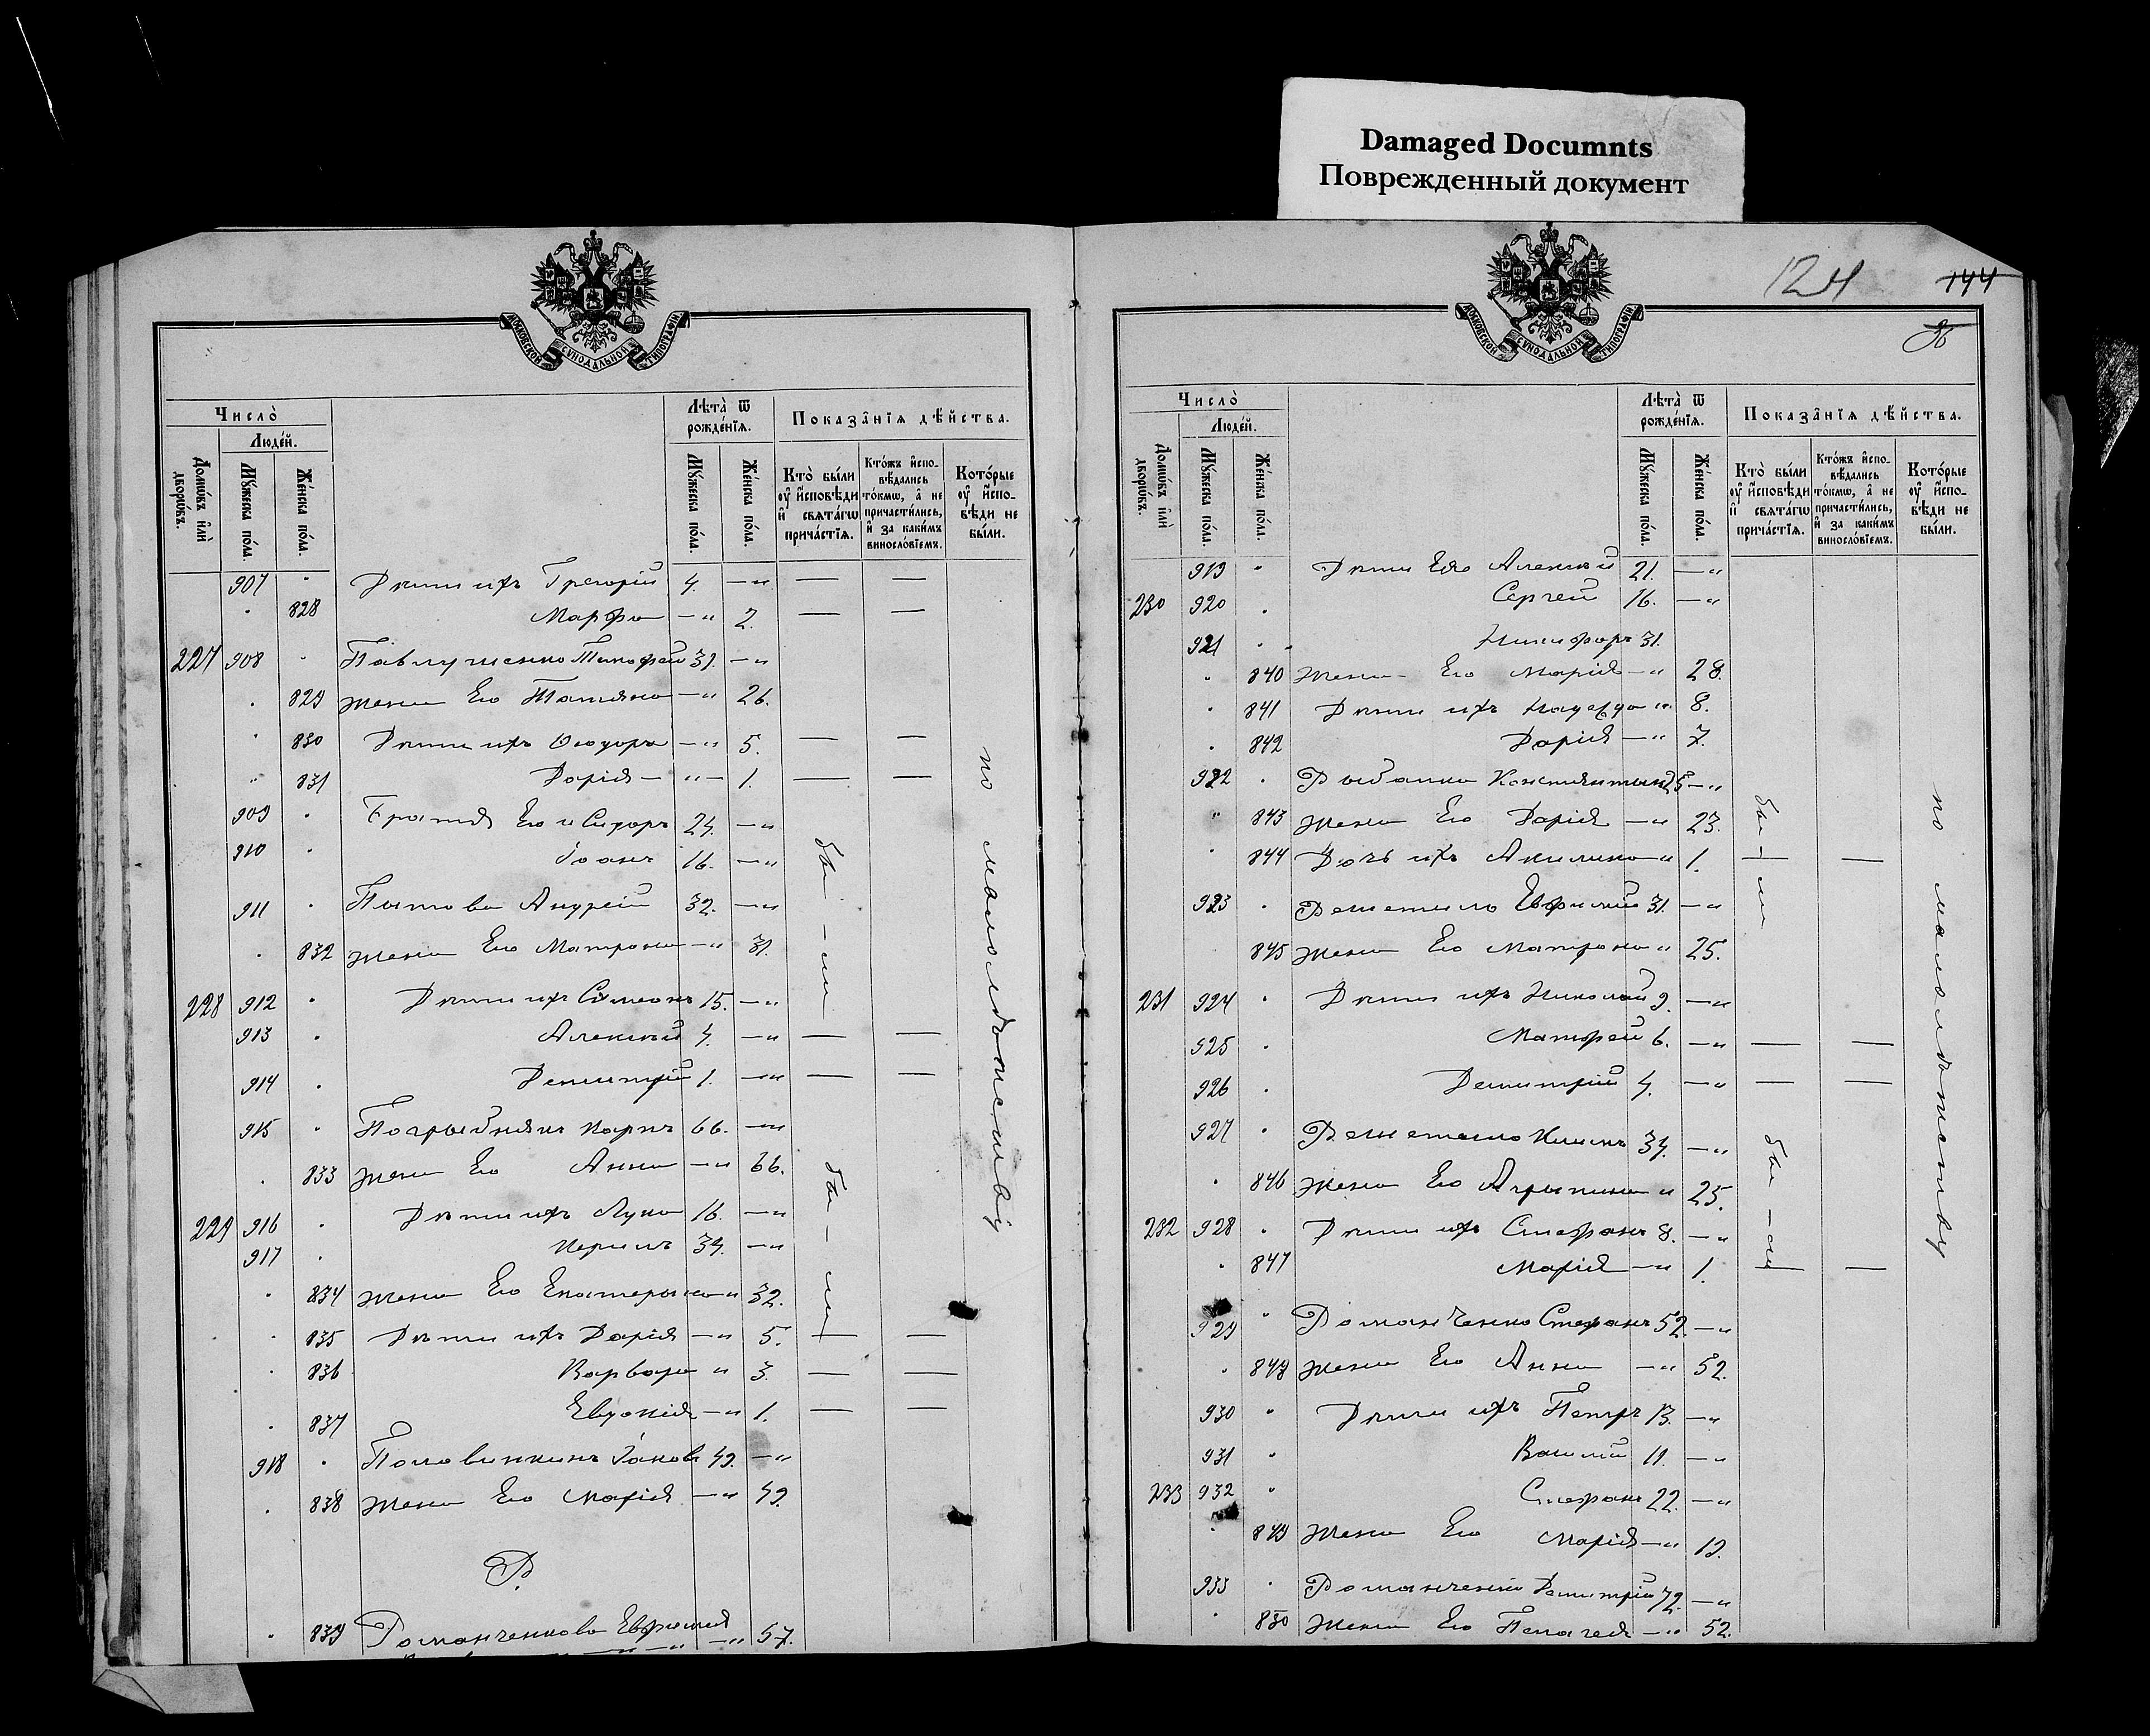 Damaged Documnts
Поврежденный документ
МОСКОВСКОЙ СѴНОДАЛЬНОЙ ТИПОГРАФІИ.
Число̀
Людей.
Домѡвъ и҆лѝ дворѡвъ.
Мꙋжеска пола.
Женска пола.
Лѣта̀ ѿ рожде́нїѧ.
Мꙋжеска пола.
Женска пола.
Показа̑нїѧ дѣ́йства.
Кто̀ бы́ли ᲂу҆ и҆сповѣди и҆ свѧта́гѡ прича́стїѧ.
Кто́жъ и҆спо-
вѣдались
то́кмѡ, а҆ не
причасти́лись,
и҆ за каки́мъ
винословїемъ.
Кото́рые
ᲂу҆ и҆спо-
вѣди не
бы́ли.
907 " Дѣти ихъ Григорій 4. — " — —
" 828 Марфа — " 2. — —
227 908 " Павлушенко Тимофей 31. — "
" 829 жена Его Татіяна — " 26.
" 830 Дѣти ихъ Ѳеодора — " 5. — —
" 831 Дарія — " — 1. — —
909 " Братья Его Исидоръ 24. — "
910 " Іоанъ 16. — "
911 " Андрей 32. — "
" 832 жена Его Матрона — " 31.
228 912 " Дѣти ихъ Симеонъ 15. — "
913 " Алексѣй 4. — " — —
914 " Димитрій 1. — " — —
915 " Погрыбнякъ Карпъ 66. — "
" 833 жена Его Анна — " 66.
229 916 " Дѣти ихъ Лука 16. — "
917 " Кирилъ 34. — "
" 834 жена Его Екатерина " 32.
" 835 Дѣти ихъ Дарія — " 5. — —
" 836 Варвара " 3. — —
" 837 Евдокія — " 1. — —
918 " Половинкинъ Іаковъ 49. — "
" 838 жена Его Марія — " 49.
Р.
" 839 Романченкова Евфимія — " 57.
бы – ли
бы – ли
по малолѣтству
124 144
МОСКОВСКОЙ СѴНОДАЛЬНОЙ ТИПОГРАФІИ.
Число̀
Людей.
Домѡвъ и҆лѝ дворѡвъ.
Мꙋжеска пола.
Женска пола.
Лѣта̀ ѿ рожде́нїѧ.
Мꙋжеска пола.
Женска пола.
Показа̑нїѧ дѣ́йства.
Кто̀ бы́ли ᲂу҆ и҆сповѣди и҆ свѧта́гѡ прича́стїѧ.
Кто́жъ и҆спо-
вѣдались
то́кмѡ, а҆ не
причасти́лись,
и҆ за каки́мъ
винословїемъ.
Кото́рые
ᲂу҆ и҆спо-
вѣди не
бы́ли.
919 " Дѣти Ея Алексѣй 21. — "
230 920 " Сергей 16. — "
921 " Никифоръ 31.
" 840 жена Его Марія — " 28.
" 841 Дѣти ихъ Надежда " 8.
" 842 Дарія — " 7.
922 " Рыбалка Константинъ 25 — "
" 843 жена Его Дарія — " 23.
" 844 Дочь ихъ Акилина " 1. — —
923 " Решетило Евфимій 31. — "
845 жена Его Матрона " 25.
231 924 " Дѣти ихъ Николай 9. — "
925 " Матфей 6. — " — —
926 " Димитрій 4. — " — —
927 " Решетило 34. — "
" 846 жена Его Агрыпина " 25.
232 928 " Дѣти ихъ Стефанъ 8. — "
" 847 Марія — " 1. — —
929 " Романченко Стефанъ 52. — "
" 848 жена Его Анна — " 52.
930 " Дѣти ихъ Петръ 13. — "
931 " Василій 11. — "
233 932 " Стефанъ 22. — "
" 849 жена Его Марія — " 19.
933 " Романченко Димитрій 72. — "
" 850 жена Его Пелагея — " 52.
бы – ли
бы – ли
по малолѣтству